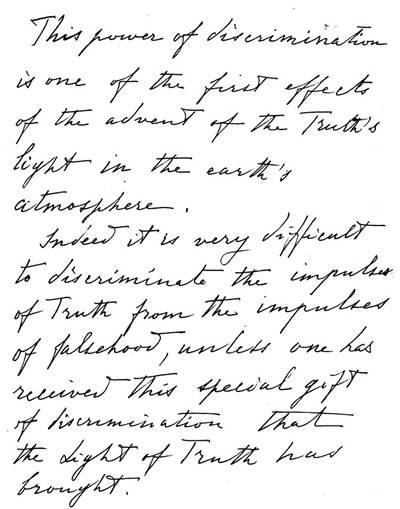 This power of discrimination
is one of the first effects
of the advent of the Truth's
light in the earth's
atmosphere.
Indeed it is very difficult
to discriminate the impulses
of Truth from the impulses
of falsehood, unless one has
received this special gift
of discrimination that
the Light of Truth has
brought.